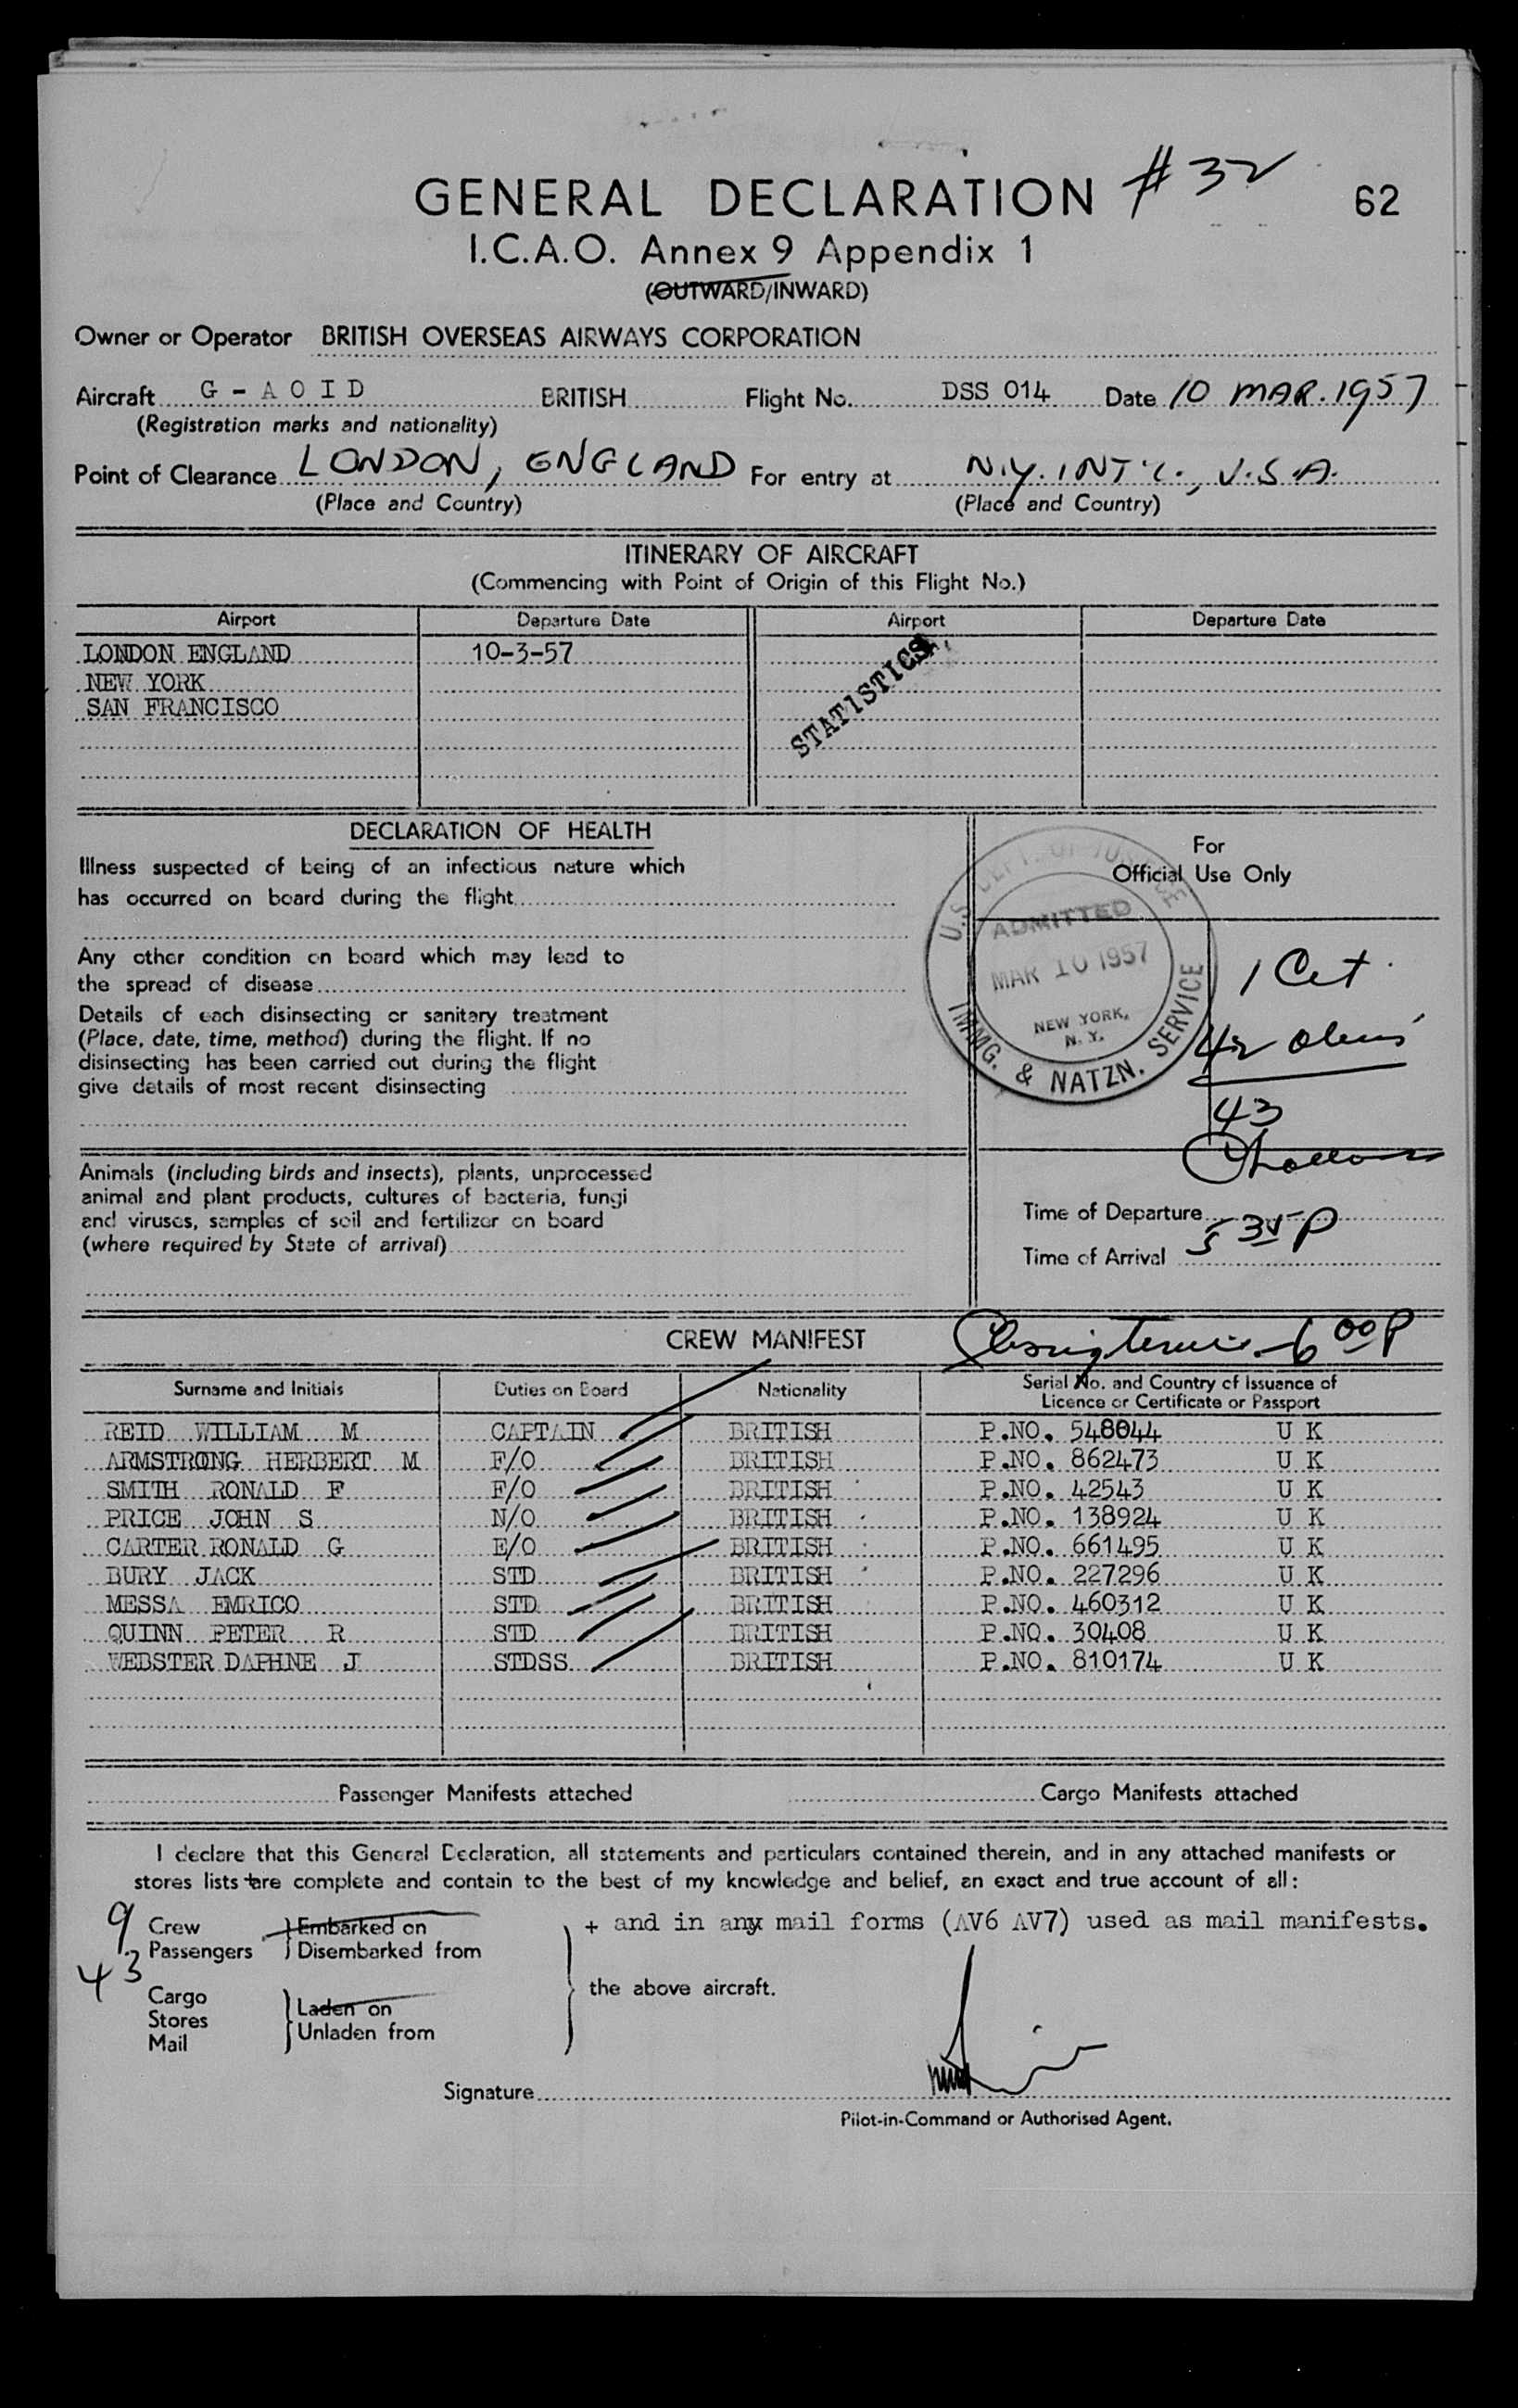 GENERAL DECLARATION # 32
62
I.C.A.O. Annex 9 Appendix 1
(OUTWARD/INWARD)
Owner or Operator BRITISH OVERSEAS AIRWAYS CORPORATION
Aircraft G - A O I D BRITISH Flight No. DSS 014 Date 10 MAR. 1957
(Registration marks and nationality)
Point of Clearance LONDON, ENGLAND For entry at N.Y. INT'L., U.S.A.
(Place and Country) (Place and Country)
ITINERARY OF AIRCRAFT
(Commencing with Point of Origin of this Flight No.)
Airport Departure Date Airport Departure Date
LONDON ENGLAND 10-3-57
NEW YORK
SAN FRANCISCO
STATISTICS
DECLARATION OF HEALTH
Illness suspected of being of an infectious nature which
has occurred on board during the flight
Any other condition on board which may lead to
the spread of disease
Details of each disinsecting or sanitary treatment
(Place, date, time, method) during the flight. If no
disinsecting has been carried out during the flight
give details of most recent disinsecting
For
Official Use Only
U.S. DEPT. OF JUSTICE
ADMITTED
MAR 10 1957
NEW YORK,
N. Y.
IMMG. & NATZN. SERVICE
1 Cit
42 aliens
43
Animals (including birds and insects), plants, unprocessed
animal and plant products, cultures of bacteria, fungi
and viruses, samples of soil and fertilizer on board
(where required by State of arrival)
Time of Departure
5 35 P
Time of Arrival
CREW MANIFEST
6 00 P
Surname and Initials Duties on Board Nationality Serial No. and Country of Issuance of
Licence or Certificate or Passport
REID WILLIAM M CAPTAIN BRITISH P.NO. 548044 U K
ARMSTRONG HERBERT M F/O BRITISH P.NO. 862473 U K
SMITH RONALD F F/O BRITISH P.NO. 42543 U K
PRICE JOHN S N/O BRITISH P.NO. 138924 U K
CARTER RONALD G E/O BRITISH P.NO. 661495 U K
BURY JACK STD BRITISH P.NO. 227296 U K
MESSA EMRICO STD BRITISH P.NO. 460312 U K
QUINN PETER R STD BRITISH P.NO. 30408 U K
WEBSTER DAPHNE J STDSS BRITISH P.NO. 810174 U K
Passenger Manifests attached Cargo Manifests attached
I declare that this General Declaration, all statements and particulars contained therein, and in any attached manifests or
stores lists + are complete and contain to the best of my knowledge and belief, an exact and true account of all :
9 Crew Embarked on
43 Passengers Disembarked from
+ and in any mail forms (AV6 AV7) used as mail manifests.
the above aircraft.
Cargo
Stores
Mail
Laden on
Unladen from
Signature
Pilot-in-Command or Authorised Agent.